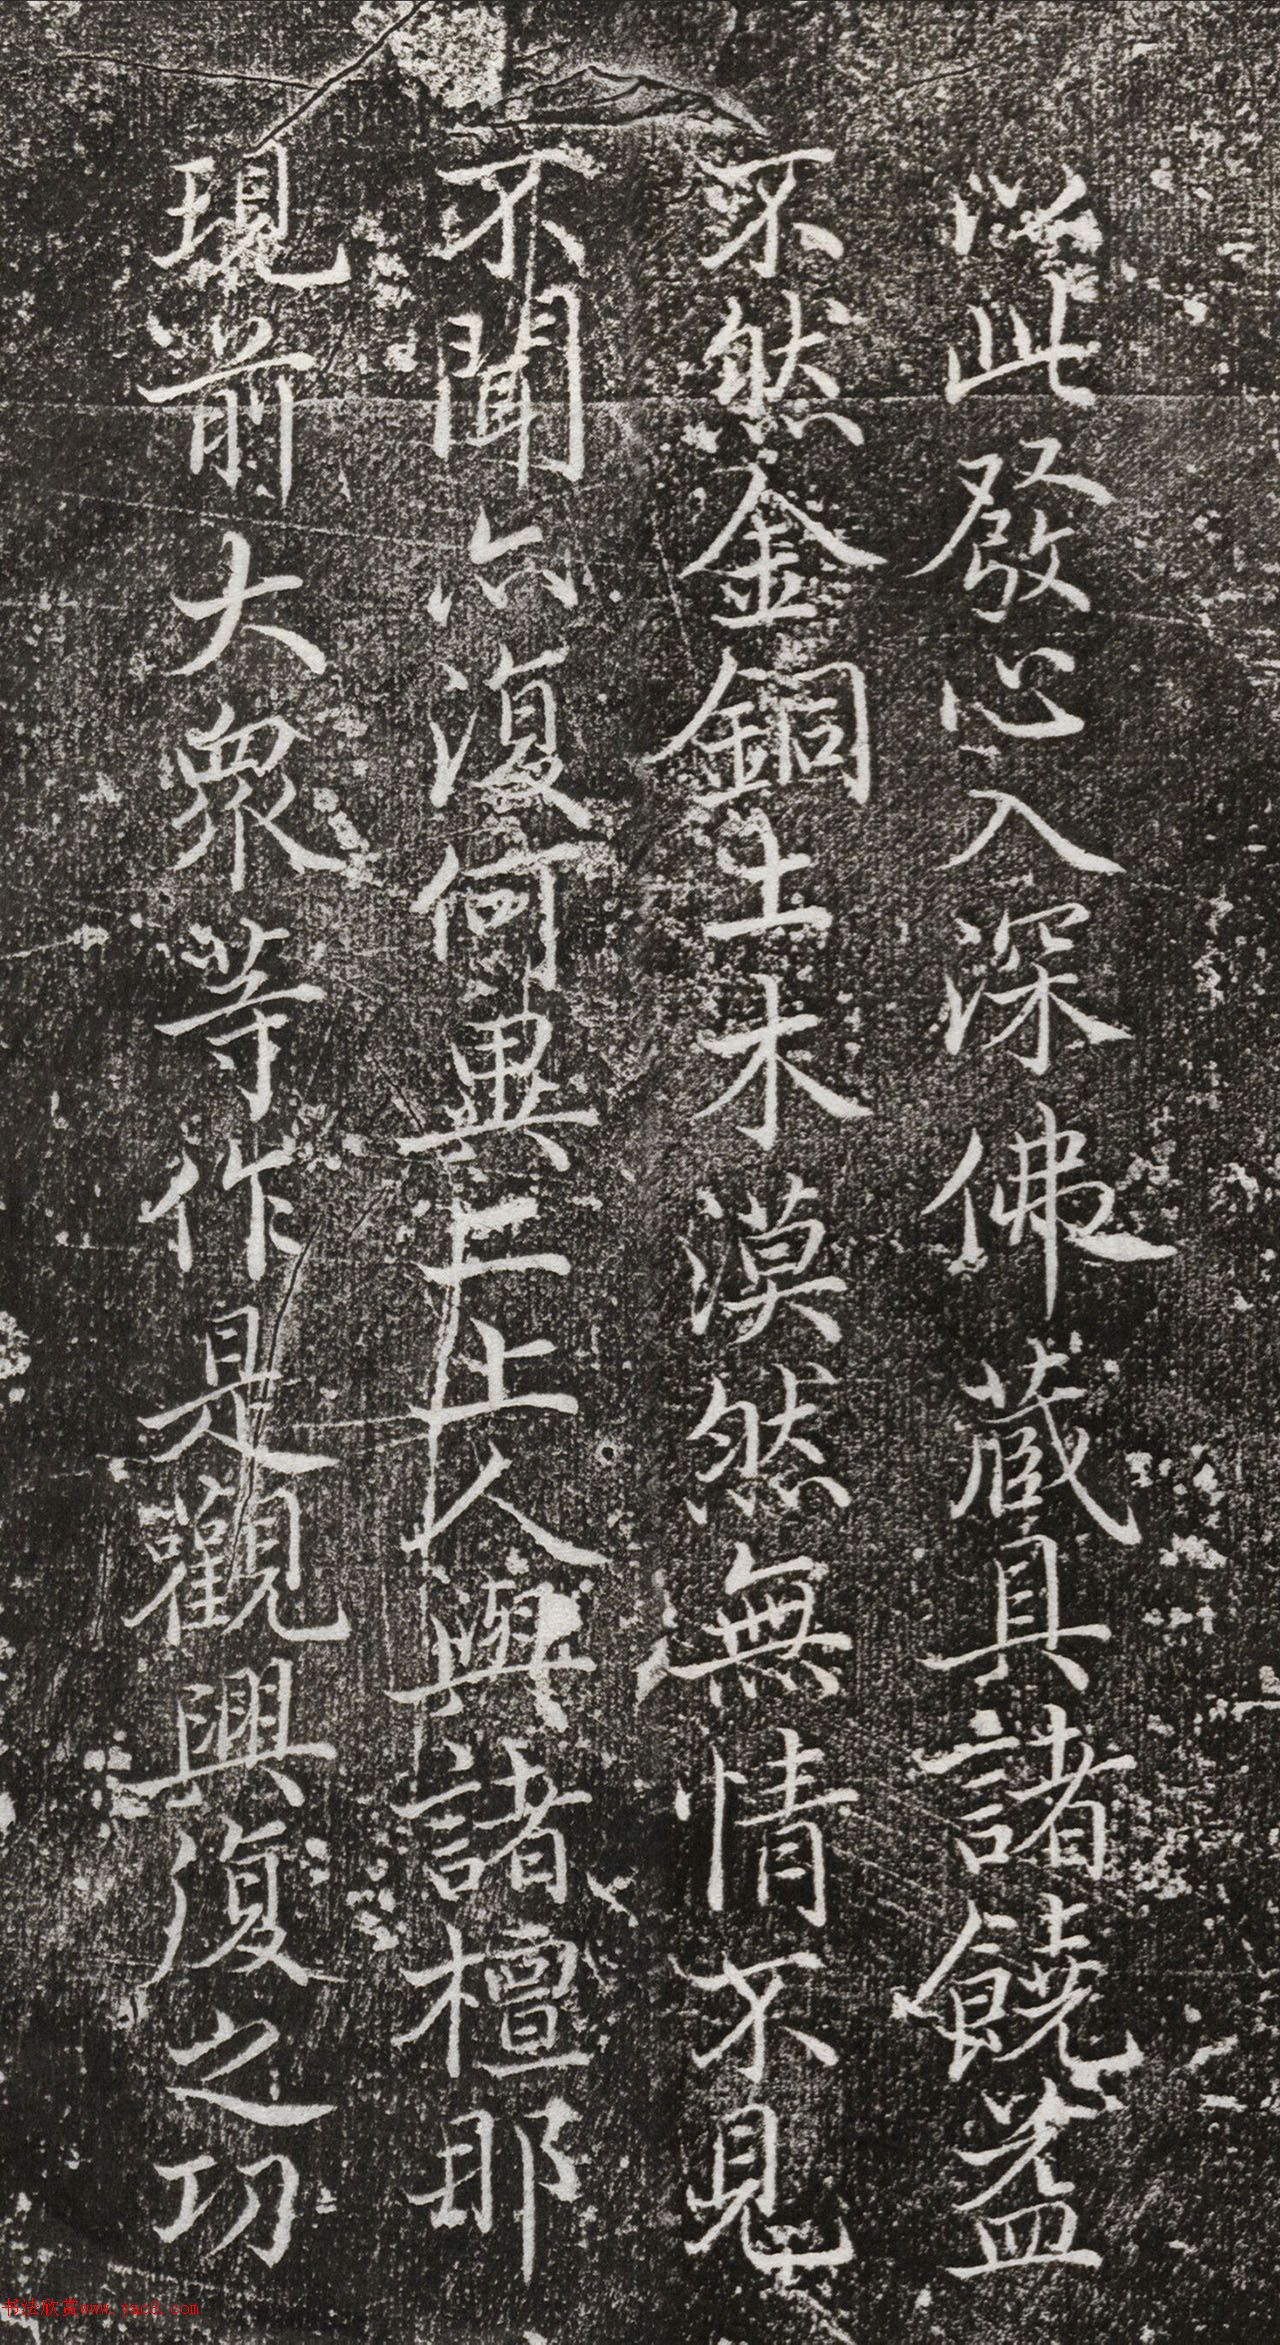 從此發心入深佛藏具諸饒益
不然金銅土木漠然無情不見
不聞亦復何異上上人與諸檀那
現前大衆等作是觀興復之功
书法欣赏www.yac8.com